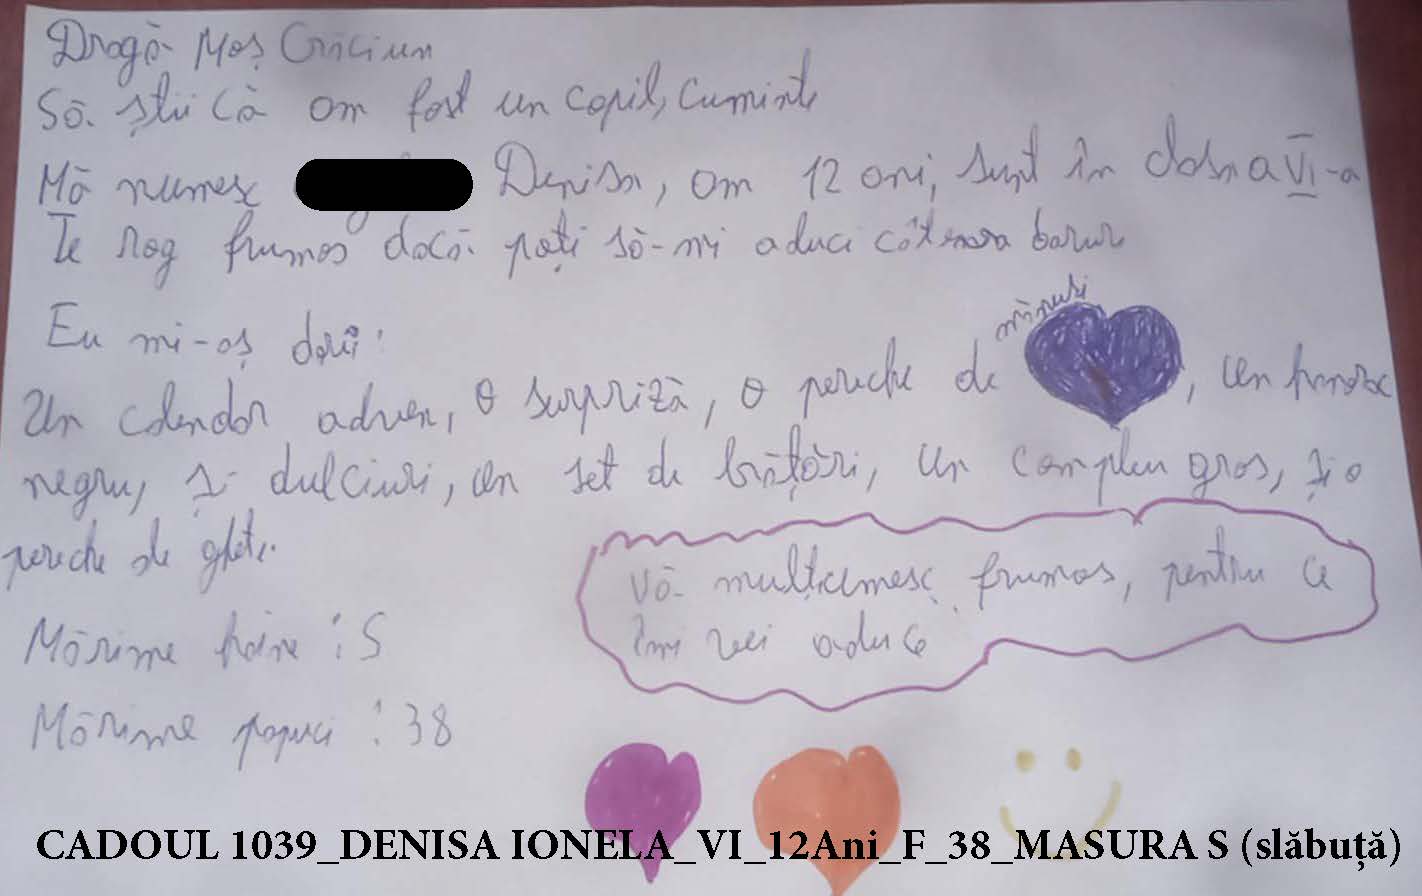 Dragă Moș Crăciun
Să știi că am fost un copil, cuminte
Mă numesc Denisa, am 12 ani, sunt în clasa a VI-a
Te rog frumos dacă poți să-mi aduci câteva
Eu mi-aș dori:
mănuși
Un calendar adven, o surpriză, o pereche de , un
negru, și dulciuri, un set de brățări, un compleu gros, și o
pereche de ghete.
Vă mulțumesc frumos, pentru ce
îmi vei aduce
Mărime haine : S
Mărime papuci : 38
CADOUL 1039_DENISA IONELA_VI_12Ani_F_38_MASURA S (slăbuță)